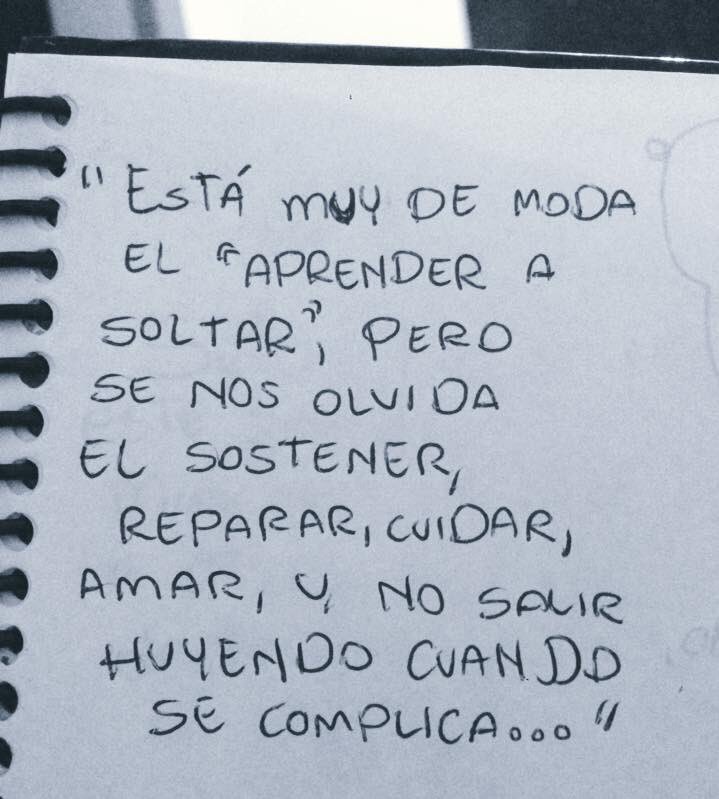 "ESTÁ MUY DE MODA
EL "APRENDER A
SOLTAR", PERO
SE NOS OLVIDA
EL SOSTENER,
REPARAR, CUIDAR,
AMAR, Y, NO SALIR
HUYENDO CUANDO
SE COMPLICA..."